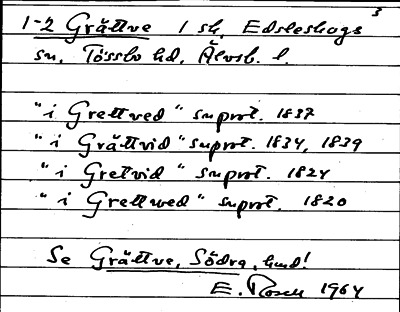 3
1-2 Grättve 1 sk, Edsleskogs
sn, Tössbo hd, Älvsb. l.
"i Grettved" snprot. 1837
"i Grättvid" snprot. 1834, 1839
"i Gretvid" snprot. 1824
"i Grettwed" snprot. 1820
Se Grättve, Södra, hmd!
E. Rosell 1964